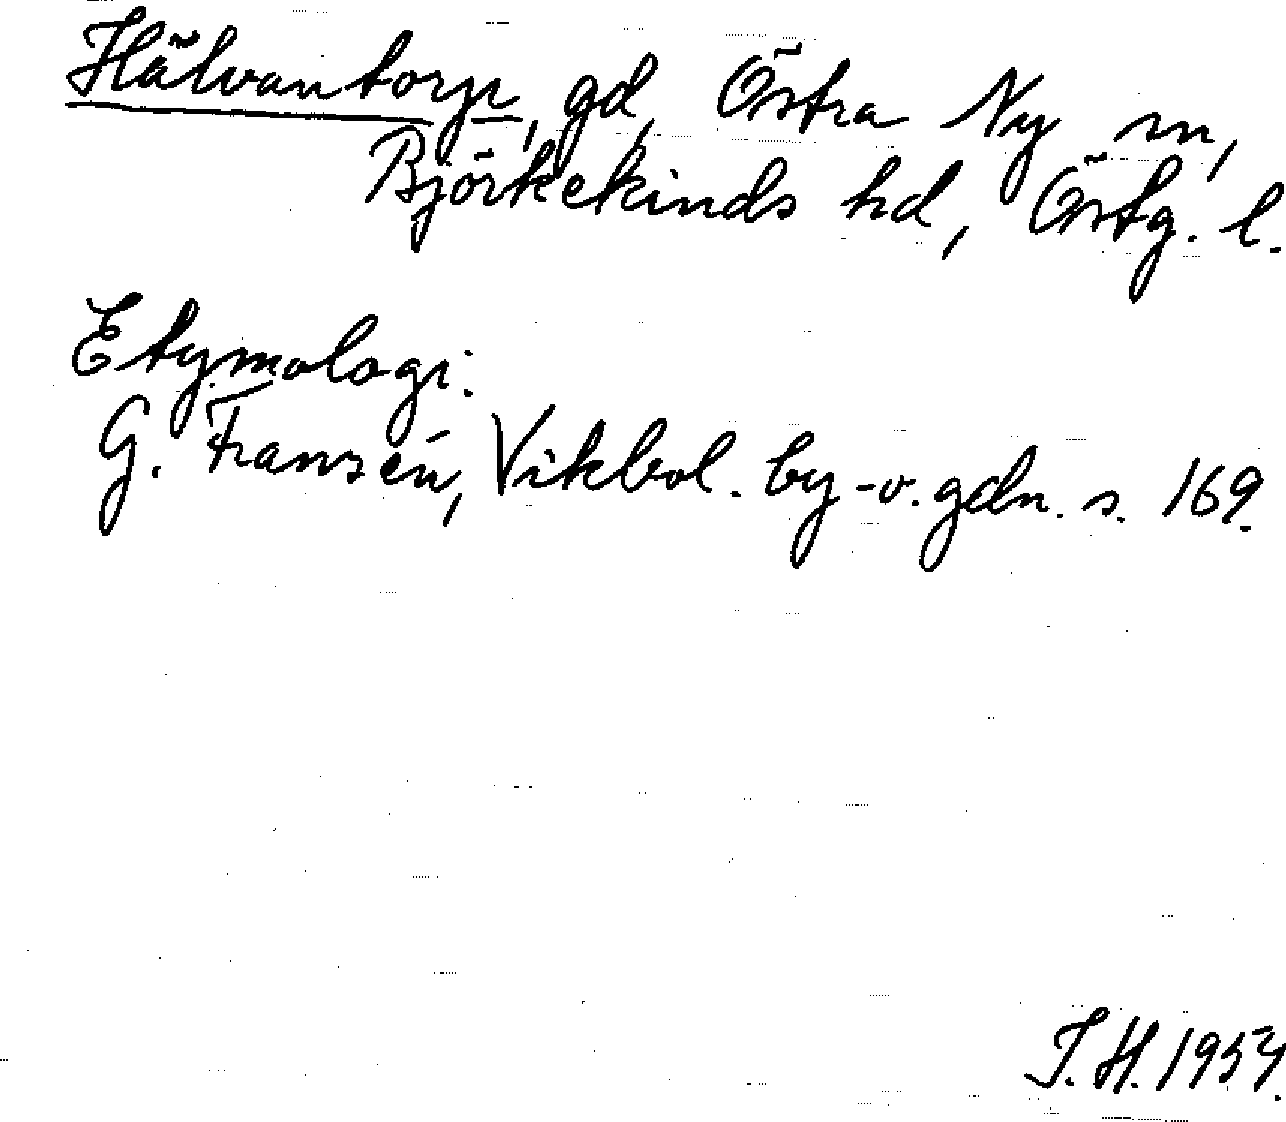 Hälvantorp, gd, Östra Ny sn,
Björkekinds hd, Östg. l.
Etymologi:
G. Fransén, Vikbol. by-o. gdn. s. 169.
J. H. 1954.